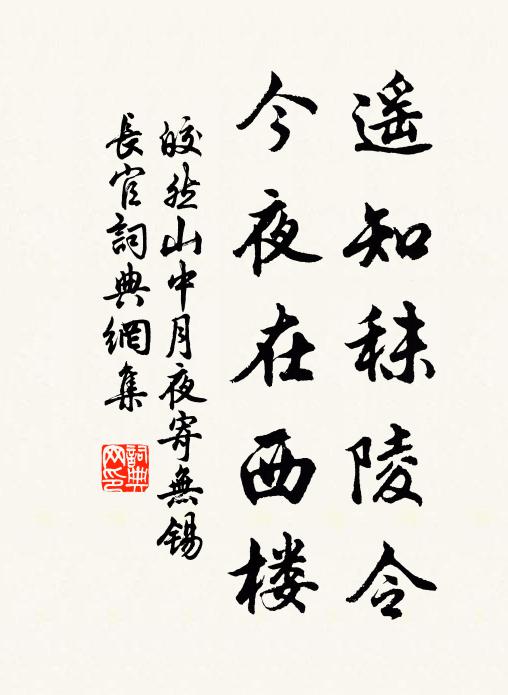 遥知秣陵令
今夜在西楼
皎然山中月夜寄無錫
長官詞典網集
詞典网印